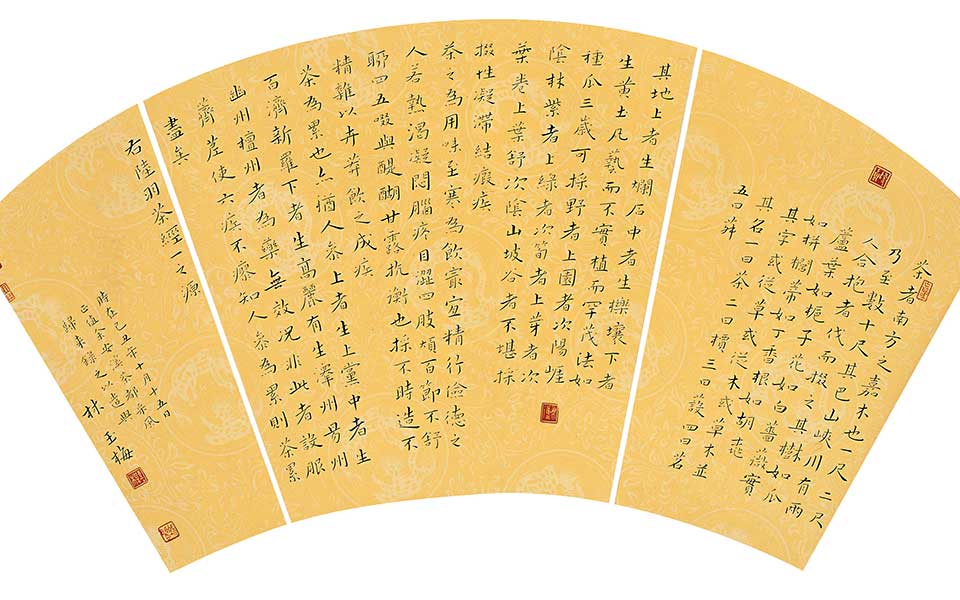 茶者南方之嘉木也一尺二尺
乃至數十尺其巴山峽川有兩
人合抱者伐而掇之其樹如瓜
蘆葉如梔子花如白薔薇實
如栟櫚蒂如丁香根如胡桃
其字或從草或從木或草木並
其名一曰茶二曰檟三曰蔎四曰茗
五曰荈
其地上者生爛石中者生櫟壤下者
生黃土凡藝而不實植而罕茂法如
種瓜三歲可採野者上園者次陽崖
陰林紫者上綠者次筍者上芽者次
葉卷上葉舒次陰山坡谷者不堪採
掇性凝滯結瘕疾
茶之為用味至寒為飲最宜精行儉德之
人若熱渴凝悶腦疼目澀四肢煩百節不舒
聊四五啜與醍醐甘露抗衡也採不時造不
精雜以卉莽飲之成疾
茶為累也亦猶人參上者生上黨中者生
百濟新羅下者生高麗有生澤州易州
幽州檀州者為藥無效況非此者設服
薺苨使六疾不瘳知人參為累則茶累
盡矣
右陸羽茶經一之源
時在己丑年十月十五日
正值余安溪茶都采風
歸來錄之以遣興
林玉梅